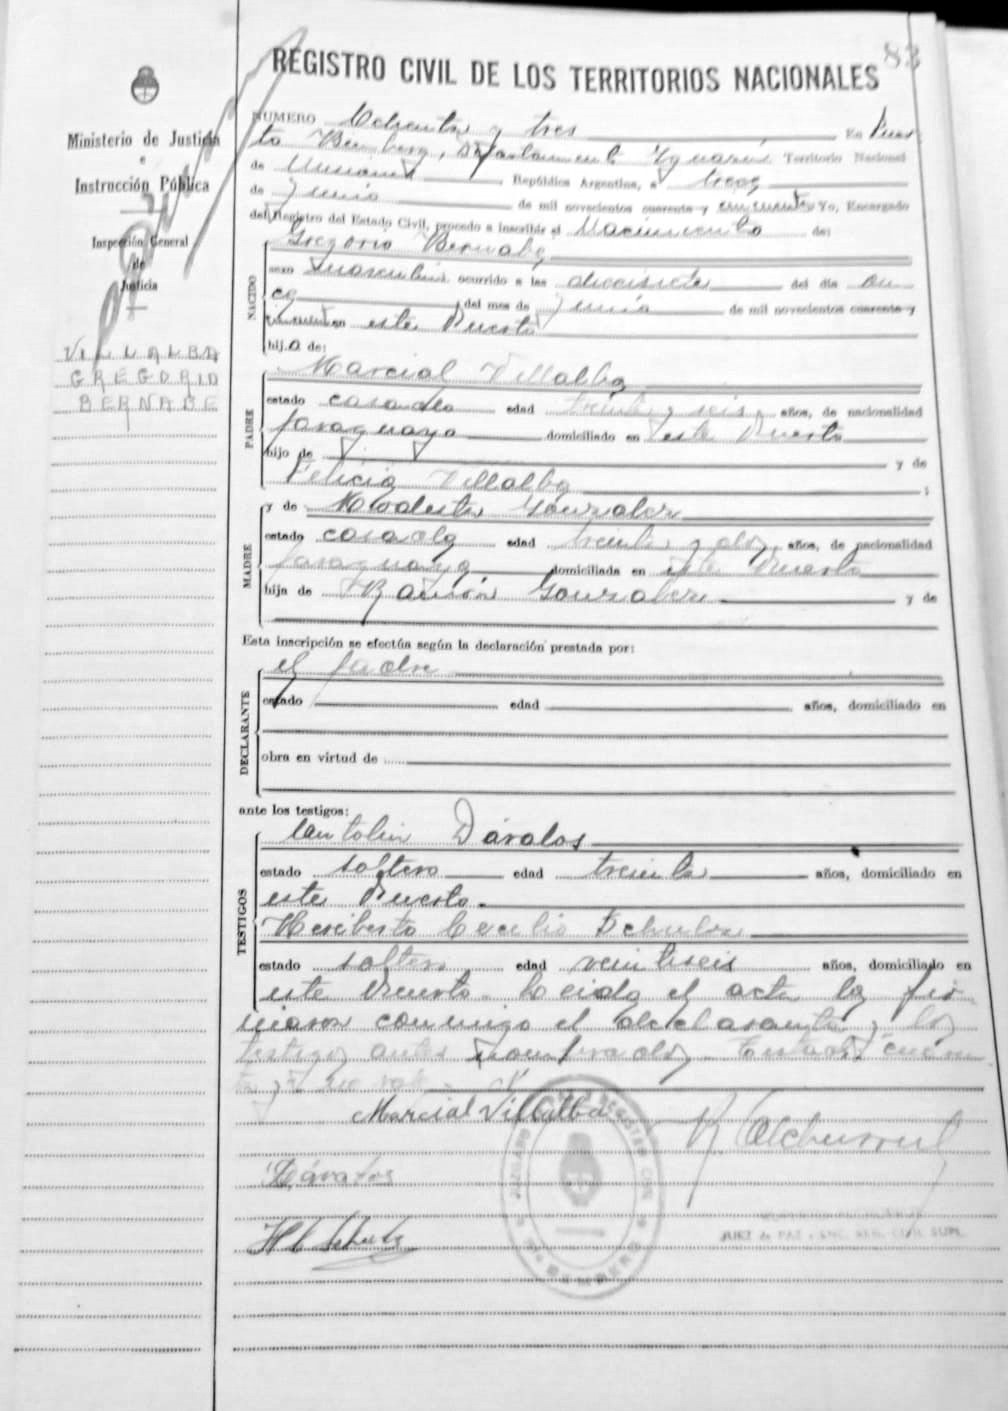 83
REGISTRO CIVIL DE LOS TERRITORIOS NACIONALES
Ministerio de Justicia
e
Instrucción Pública
Inspección General
de
Justicia
VILLALBA
GREGORIO
BERNABE
NUMERO Ochenta y tres En Puer
to Bemberg, Departamento Iguazú Territorio Nacional
de Misiones República Argentina, a trece
de Junio de mil novecientos cuarenta y cincuenta Yo, Encargado
del Registro del Estado Civil, procedo a inscribir el Nacimiento de:
NACIDO
Gregorio Bernabe
sexo masculino ocurrido a las diecisiete del día on
ce del mes de Junio de mil novecientos cuarenta y
cincuenta en este Puerto
hijo de:
PADRE
Marcial Villalba
estado casado edad treinta y seis años, de nacionalidad
paraguayo domiciliado en este Puerto
hijo de y de
Felicia Villalba
MADRE
y de Modesta Gonzalez
estado casada edad treinta y dos, años, de nacionalidad
paraguaya domiciliada en este Puerto
hija de Ramón Gonzalez y de
Esta inscripción se efectúa según la declaración prestada por:
DECLARANTE
el padre
estado edad años, domiciliado en
obra en virtud de
ante los testigos:
TESTIGOS
Antolin Dávalos
estado soltero edad treinta años, domiciliado en
este Puerto.
Heriberto Cecilio Schulz
estado soltero edad veintiseis años, domiciliado en
este Puerto. Leida el acta la fir
maron conmigo el declarante y los
testigos antes nombrados. Entado: cuaren
ta y: no vale.
Marcial Villalba
Dávalos
H C Schulz
JUEZ de PAZ y ENC. REG. CIVIL SUPL.